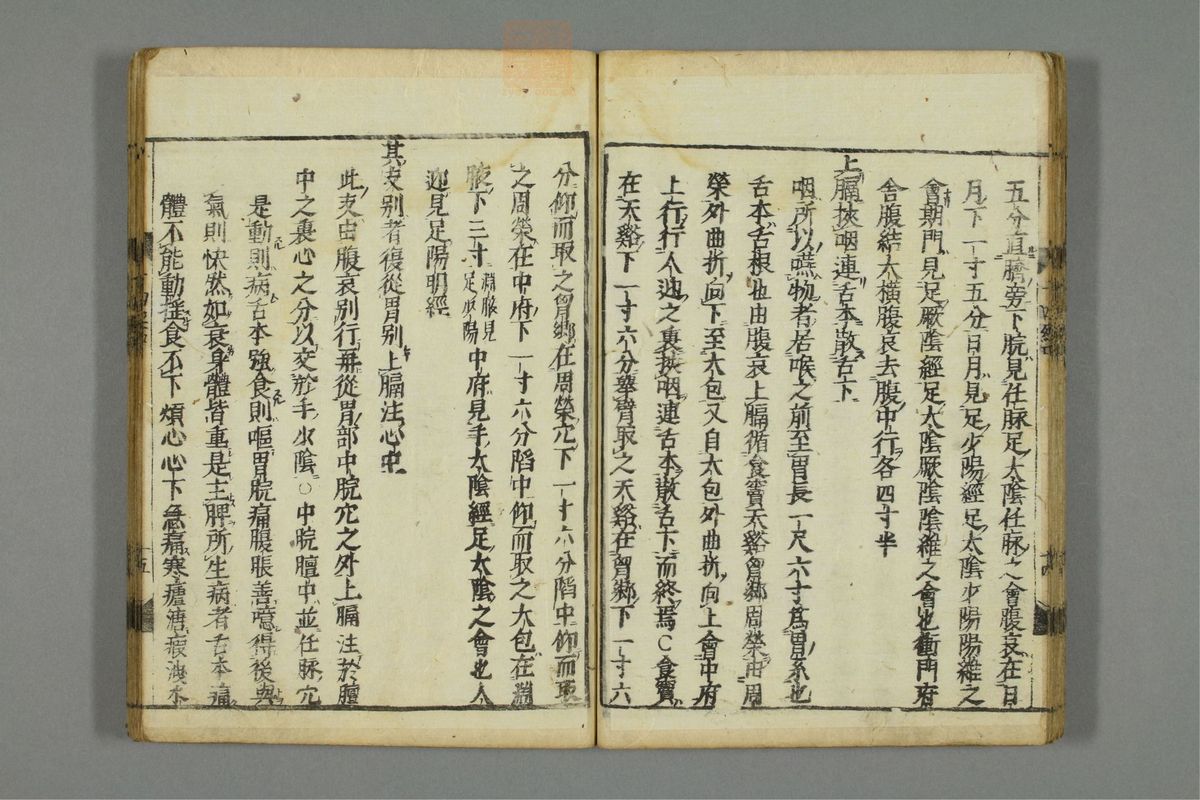 五分直臍旁下脘見任脉足太陰任脉之會腹哀在日
月下一寸五分日月見足少陽經足太陰少陽陽維之
會期門見足厥陰經足太陰厥陰陰維之會也衝門府
舍腹結大横腹哀去腹中行各四寸半
上膈挾咽連舌本散舌下
咽所以嚥物者居喉之前至胃長一尺六寸爲胃系也
舌本舌根也由腹哀上膈循食竇天谿胷鄉周榮由周
榮外曲折向下至大包又自大包外曲折向上會中府
上行行人迎之裏挾咽連舌本散舌下而終焉○食竇
在天谿下一寸六分舉臂取之天谿在胷鄉下一寸六
分仰而取之胷鄉在周榮穴下一寸六分陷中仰而取
之周榮在中府下一寸六分陷中仰而取之大包在淵
腋下三寸淵腋見足少陽中府見手太陰經足太陰之會也人
迎見足陽明經
其支别者復從胃别上膈注心中
此支由腹哀别行再從胃部中脘穴之外上膈注於膻
中之裏心之分以交於手少陰○中脘膻中並任脉穴
是動則病舌本強食則嘔胃脘痛腹脹善噫得後與
氣則快然如衰身體皆重是主脾所生病者舌本痛
體不能動揺食不下煩心心下急痛寒瘧溏瘕洩水